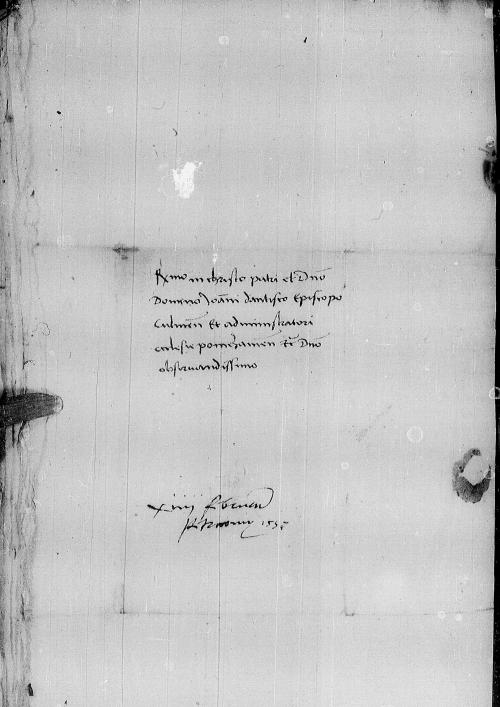 R̃mo in christo patri et Dño
Domino Joãni dantisco Episcopo
Culmeñ Et administratori
ecclesie pomezanieñ Et Dño
observandissimo
xiiii